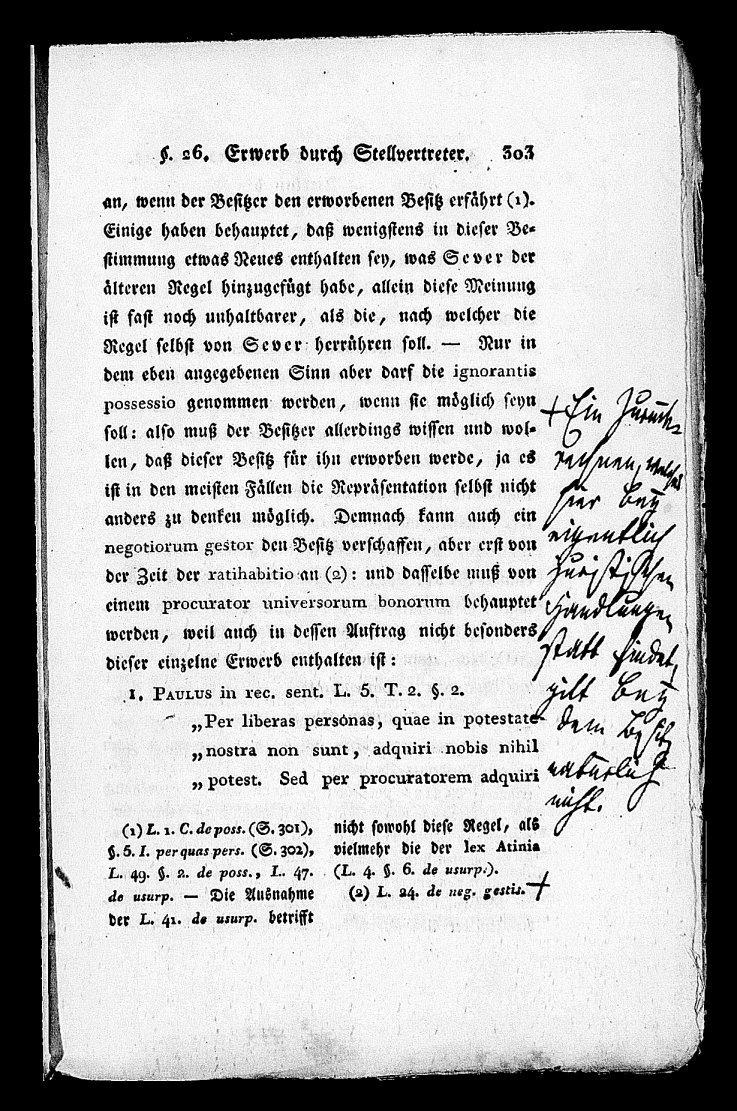 §. 26. Erwerb durch Stellvertreter. 303
an, wenn der Besitzer den erworbenen Besitz erfährt (1).
Einige haben behauptet, daß wenigstens in dieser Be-
stimmung etwas Neues enthalten sey, was Sever der
älteren Regel hinzugefügt habe, allein diese Meinung
ist fast noch unhaltbarer, als die, nach welcher die
Regel selbst von Sever herrühren soll. — Nur in
dem eben angegebenen Sinn aber darf die ignorantis
possessio genommen werden, wenn sie möglich seyn
soll: also muß der Besitzer allerdings wissen und wol-
len, daß dieser Besitz für ihn erworben werde, ja es
ist in den meisten Fällen die Repräsentation selbst nicht
anders zu denken möglich. Demnach kann auch ein
negotiorum gestor den Besitz verschaffen, aber erst von
der Zeit der ratihabitio an (2): und dasselbe muß von
einem procurator universorum bonorum behauptet
werden, weil auch in dessen Auftrag nicht besonders
dieser einzelne Erwerb enthalten ist:
1. PAULUS in rec. sent. L. 5. T. 2. §. 2.
„Per liberas personas, quae in potestate
„nostra non sunt, adquiri nobis nihil
„potest. Sed per procuratorem adquiri
(1) L. 1. C. de poss. (S. 301),
§. 5. I. per quas pers. (S. 302),
L. 49. §. 2. de poss., L. 47.
de usurp. — Die Ausnahme
der L. 41. de usurp. betrifft
nicht sowohl diese Regel, als
vielmehr die der lex Atinia
(L. 4. §. 6. de usurp.).
(2) L. 24. de neg. gestis. +
+ Ein Zurück-
rechnen, welches
hier bey
eigentlich
juristischen
Handlungen
statt findet,
gilt bey
dem Besitz
natürlich
nicht.